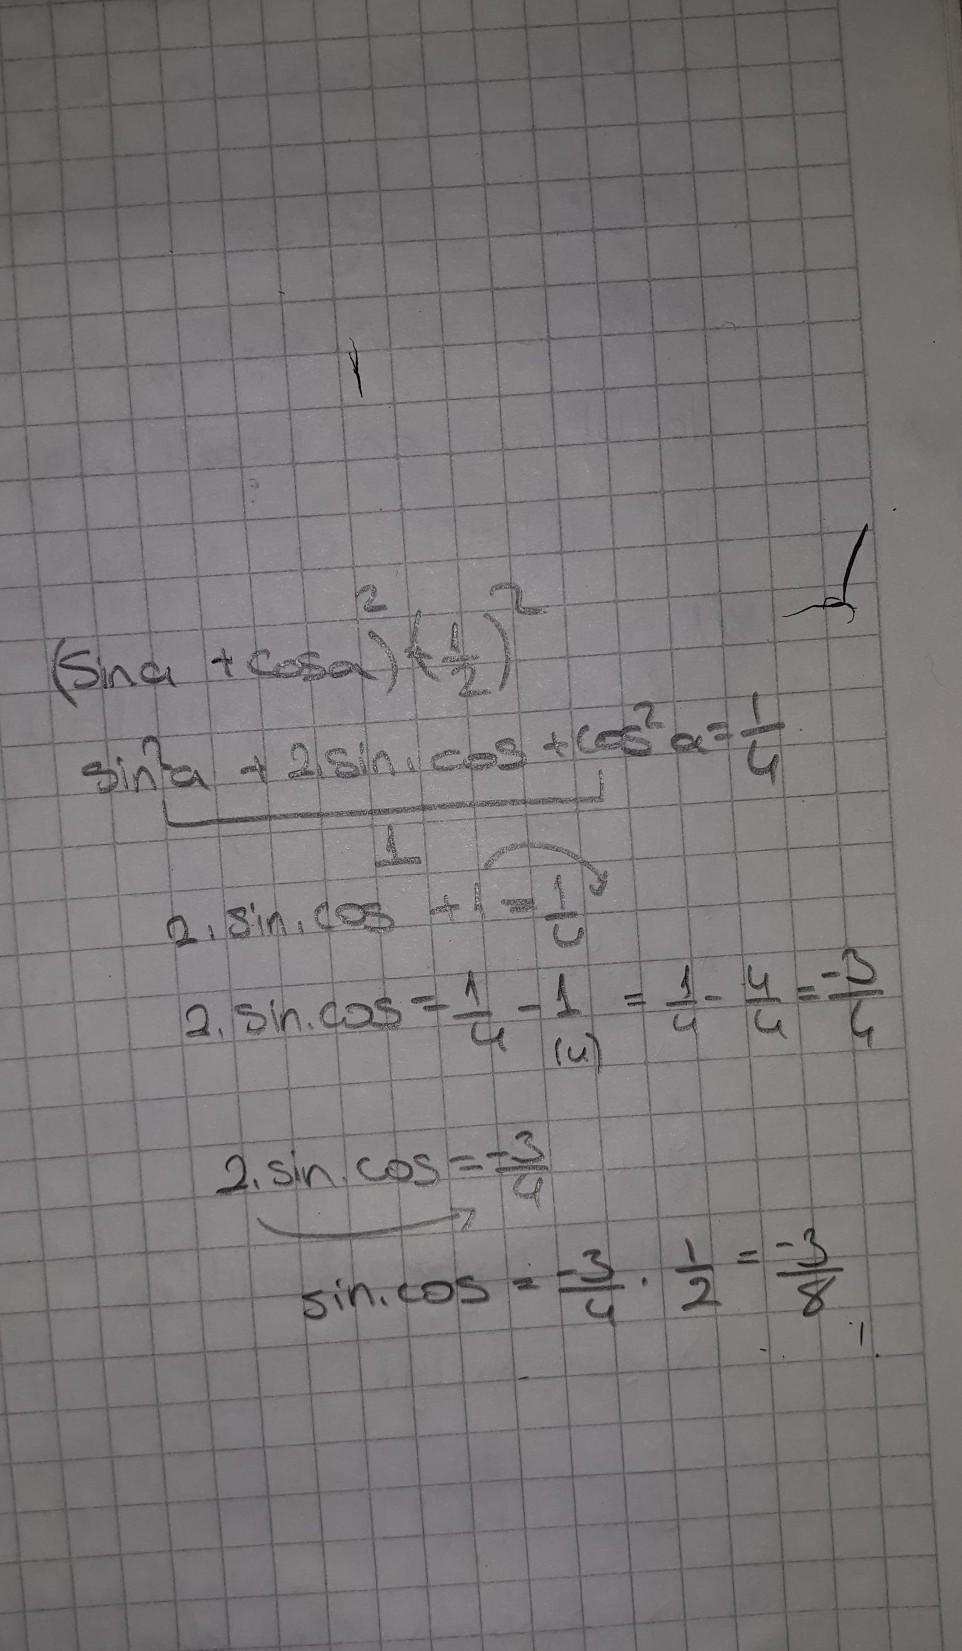 (sina + cosa)² (1/2)²
sin²a + 2.sin.cos + cos²a = 1/4
1
2.sin.cos + 1 = 1/4
2.sin.cos = 1/4 - 1 (4) = 1/4 - 4/4 = -3/4
2.sin.cos = -3/4
sin.cos = -3/4 . 1/2 = -3/8